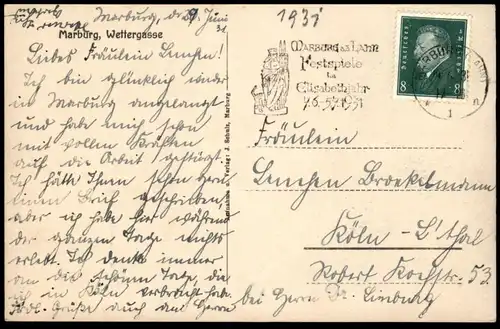 Marburg, den 29. Juni
31
Marburg, Wettergasse
Liebes Fräulein Lenchen!
bin glücklich wieder
in Marburg angelangt
und habe mich schon
mit vollen Kräften
auf die Arbeit gestürzt.
Ich hätte Ihnen schon gern
einen Brief geschrieben,
aber ich habe hier während
der ganzen Tage nichts
erlebt. Ich denke immer
an die schönen Tage, die
ich in Köln verbracht habe.
Grüße auch an Herrn
Aufnahme u. Verlag: J. Schulz, Marburg
1931
MARBURG a.d. LAHN
Festspiele
im
Elisabethjahr
7.6.-5.7.1931
DEUTSCHES REICH
8 8
MARBURG
1
Fräulein
Lenchen Broekelmann
Köln - L'thal
Robert Kochstr. 53
bei Herrn Dr. Lindung